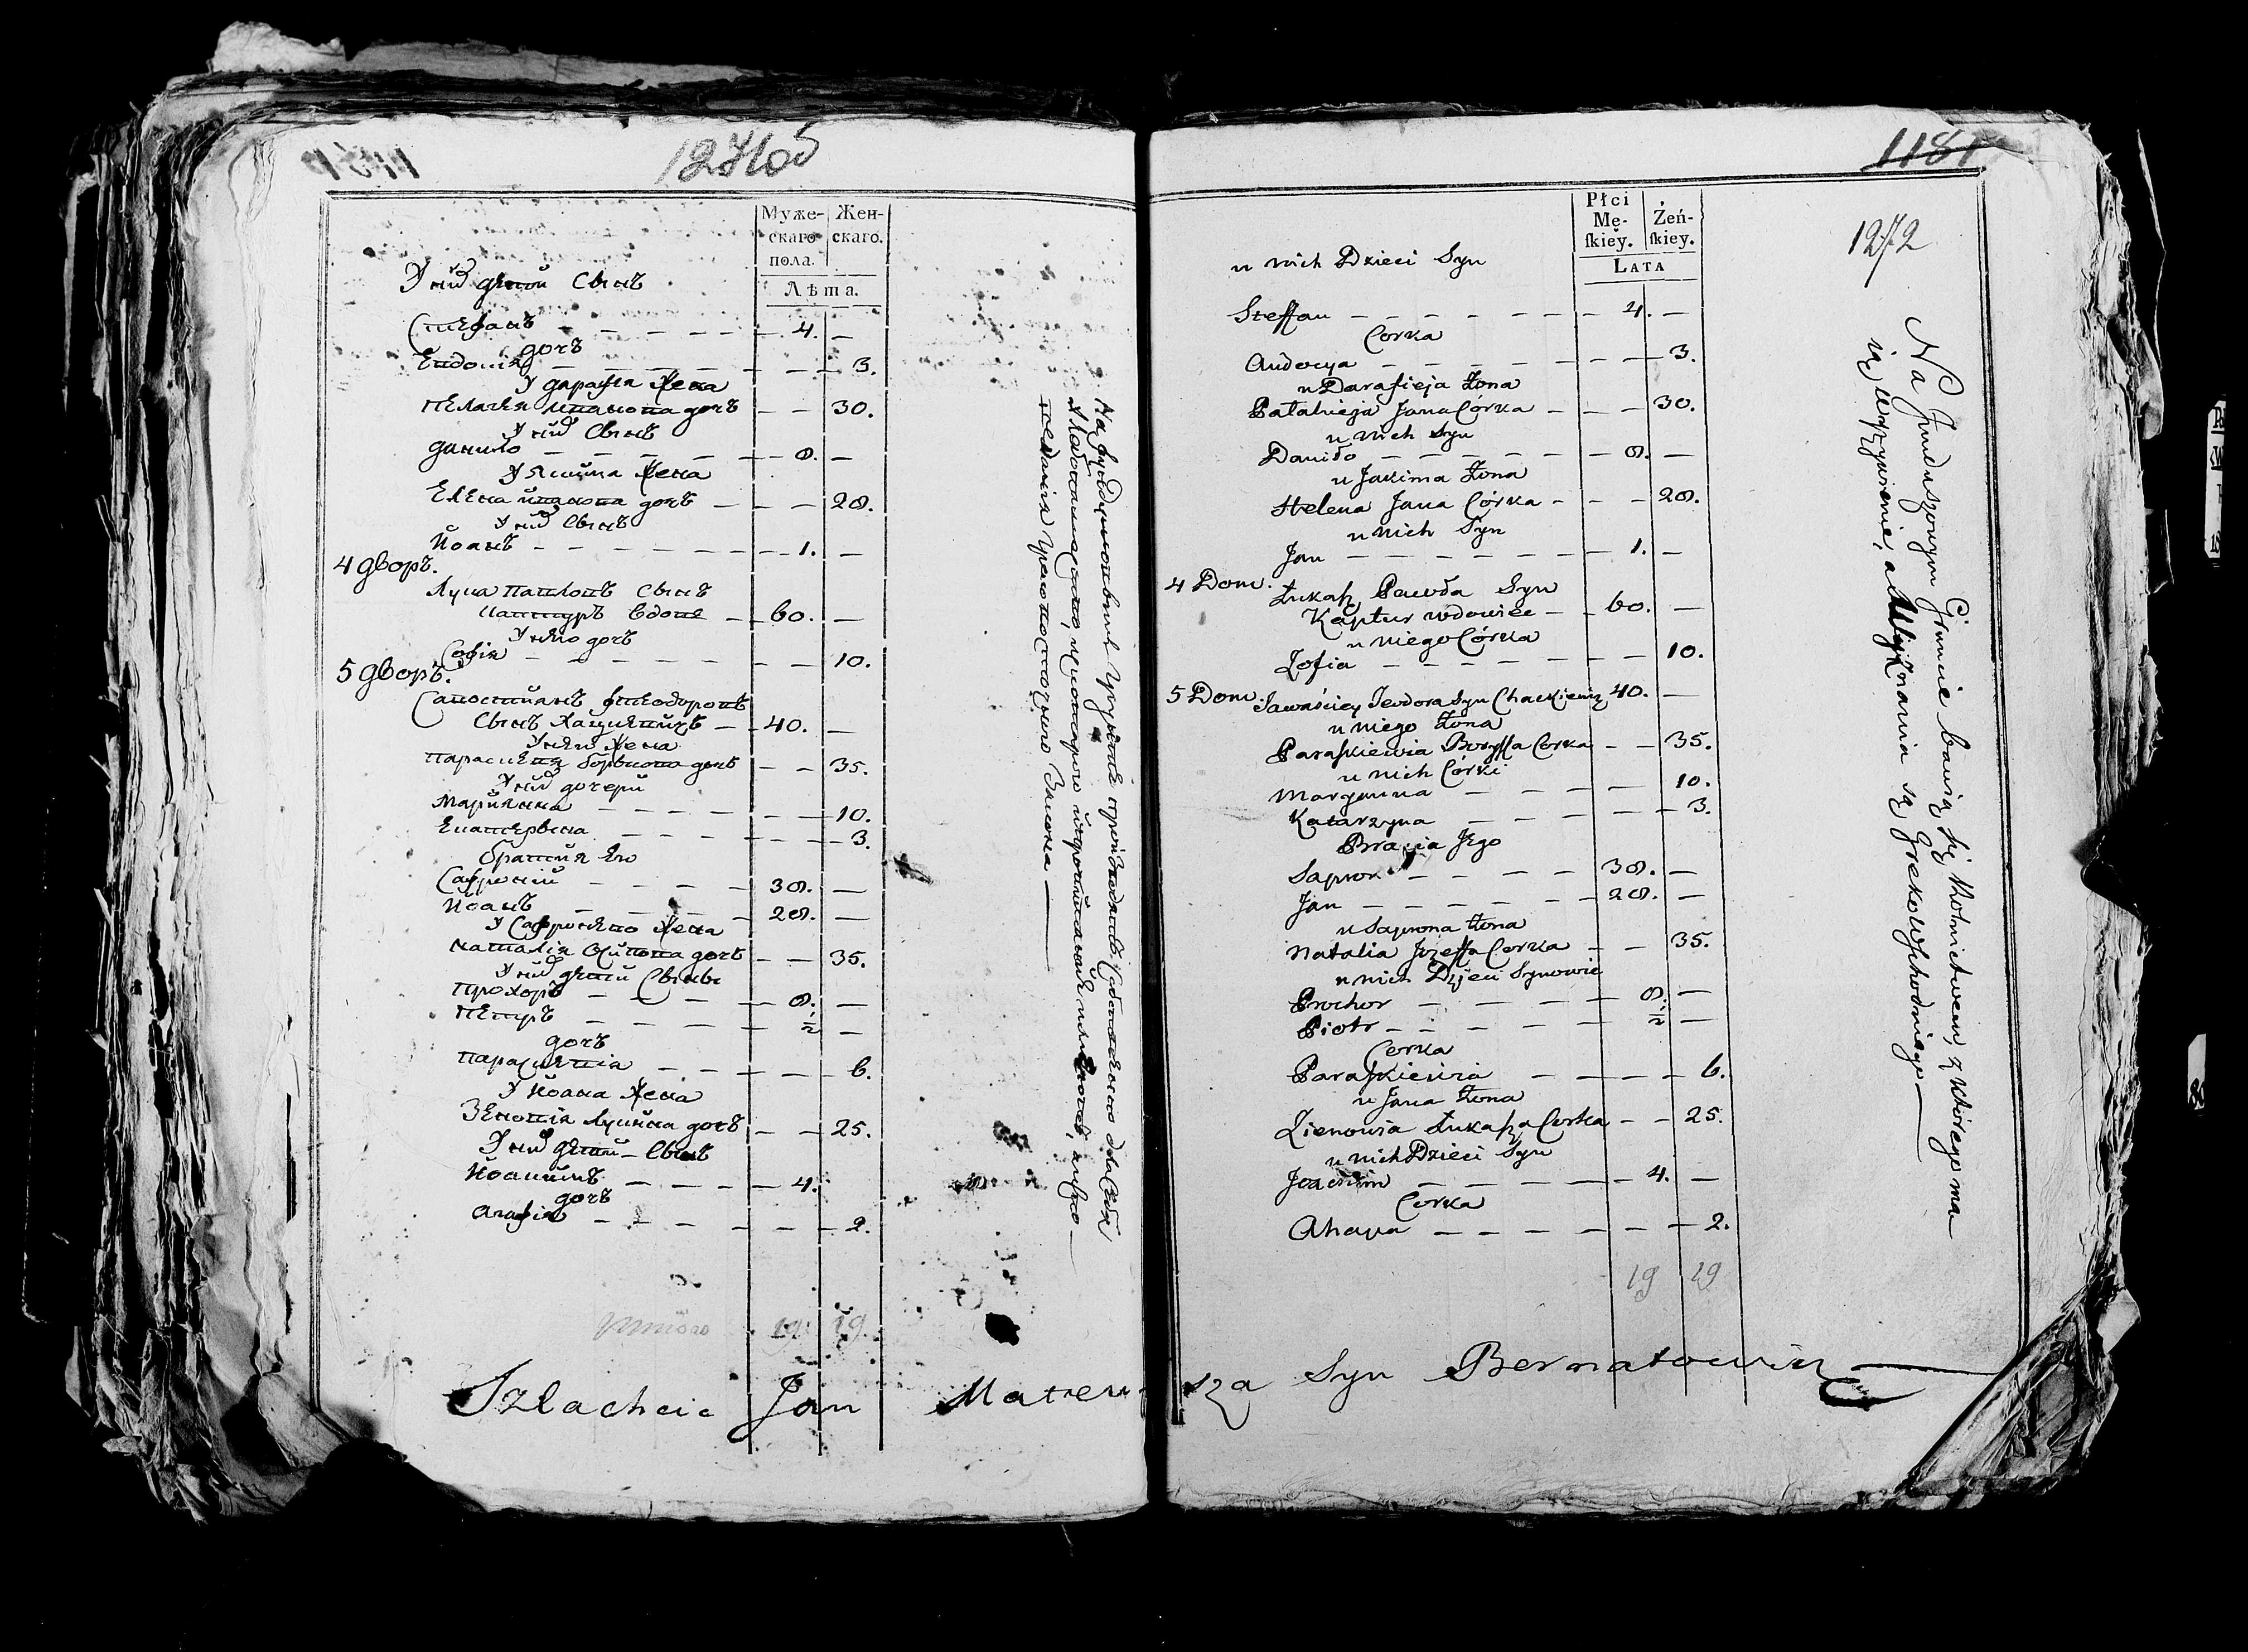 1271об
Муже-
скаго
пола.
Жен-
скаго.
Лѣта.
У них детей Сынъ
Стефанъ — — — — 4. —
дочъ
Евдокия — — — — 3.
У дарафея Жена
Пелагея Иванова дочъ — — 30.
У них Сынъ
данило — — — — 8. —
У Якима Жена
Елена Иванова дочъ — — — 28.
У них Сынъ
Иоанъ — — — — 1. —
4 дворъ.
Лука Павловъ Сынъ
Каптуръ вдовец — 60. —
У него дочъ
Софія — — — — 10.
5 дворъ.
Савостиянъ Феодоровъ
Сынъ Хацкевичъ — 40. —
У него Жена
Параскевя борисова дочъ — — 35.
У них дочери
Мариянна — — — — 10.
Екатерина — — — — 3.
братия Его
Сафроний — — — — 38. —
Иоанъ — — — — 28. —
У Сафронего Жена
Наталія Осипова дочъ — — 35.
У них детей Сыны
Прохоръ — — — — 8. —
Петръ — — — — ½ —
дочъ
Параскевия — — — — 6.
У Иоана Жена
Зеновія Лукина дочъ — — 25.
У них детей Сынъ
Иоакимъ — — — — 4.
дочъ
Агафия — — — — 2.
19 19
1181
1272
Płci
Mę-
ſkiey.
Żeń-
ſkiey.
LATA
u nich Dzieci Syn
Steffan — — — — 4. —
Corka
Audocya — — — — 3.
u Darafieja Żona
Pałahieja Jana Córka — — — 30.
u nich Syn
Daniło — — — — 8. —
u Jakima Żona
Helena Jana Córka — — — 28.
u nich Syn
Jan — — — — 1. —
4 Dom.
Łukaſz Pawła Syn
Kaptur wdowiec — — 60. —
u niego Córka
Zofia — — — — 10.
5 Dom. Sawaściey Teodora Syn Chackiewicz 40. —
u niego Żona
Paraſkiewia Boryſſa Corka — — 35.
u nich Córki
Maryanna — — — — 10.
Katarzyna — — — — 3.
Bracia Jego
Sapron — — — — 38. —
Jan — — — — 28. —
u Saprona Żona
Natalia Jozeffa Corka — — 35.
u nich Dzieci Synowie
Prochor — — — — 8. —
Piotr — — — — ½ —
Corka
Paraſkiewia — — — — 6.
u Jana Żona
Zienowia Łukaſza Corka — — 25.
u nich Dzieci Syn
Joachim — — — — 4. —
Corka
Ahapa — — — — 2.
19 19
Na Funduszowym Grunie bawią się Rolnictwem, z którego ma
ią utrzymanie, a Wyznania są Grekowschodniego —
Szlachcic Jan Mateusza Syn Bernatowicz